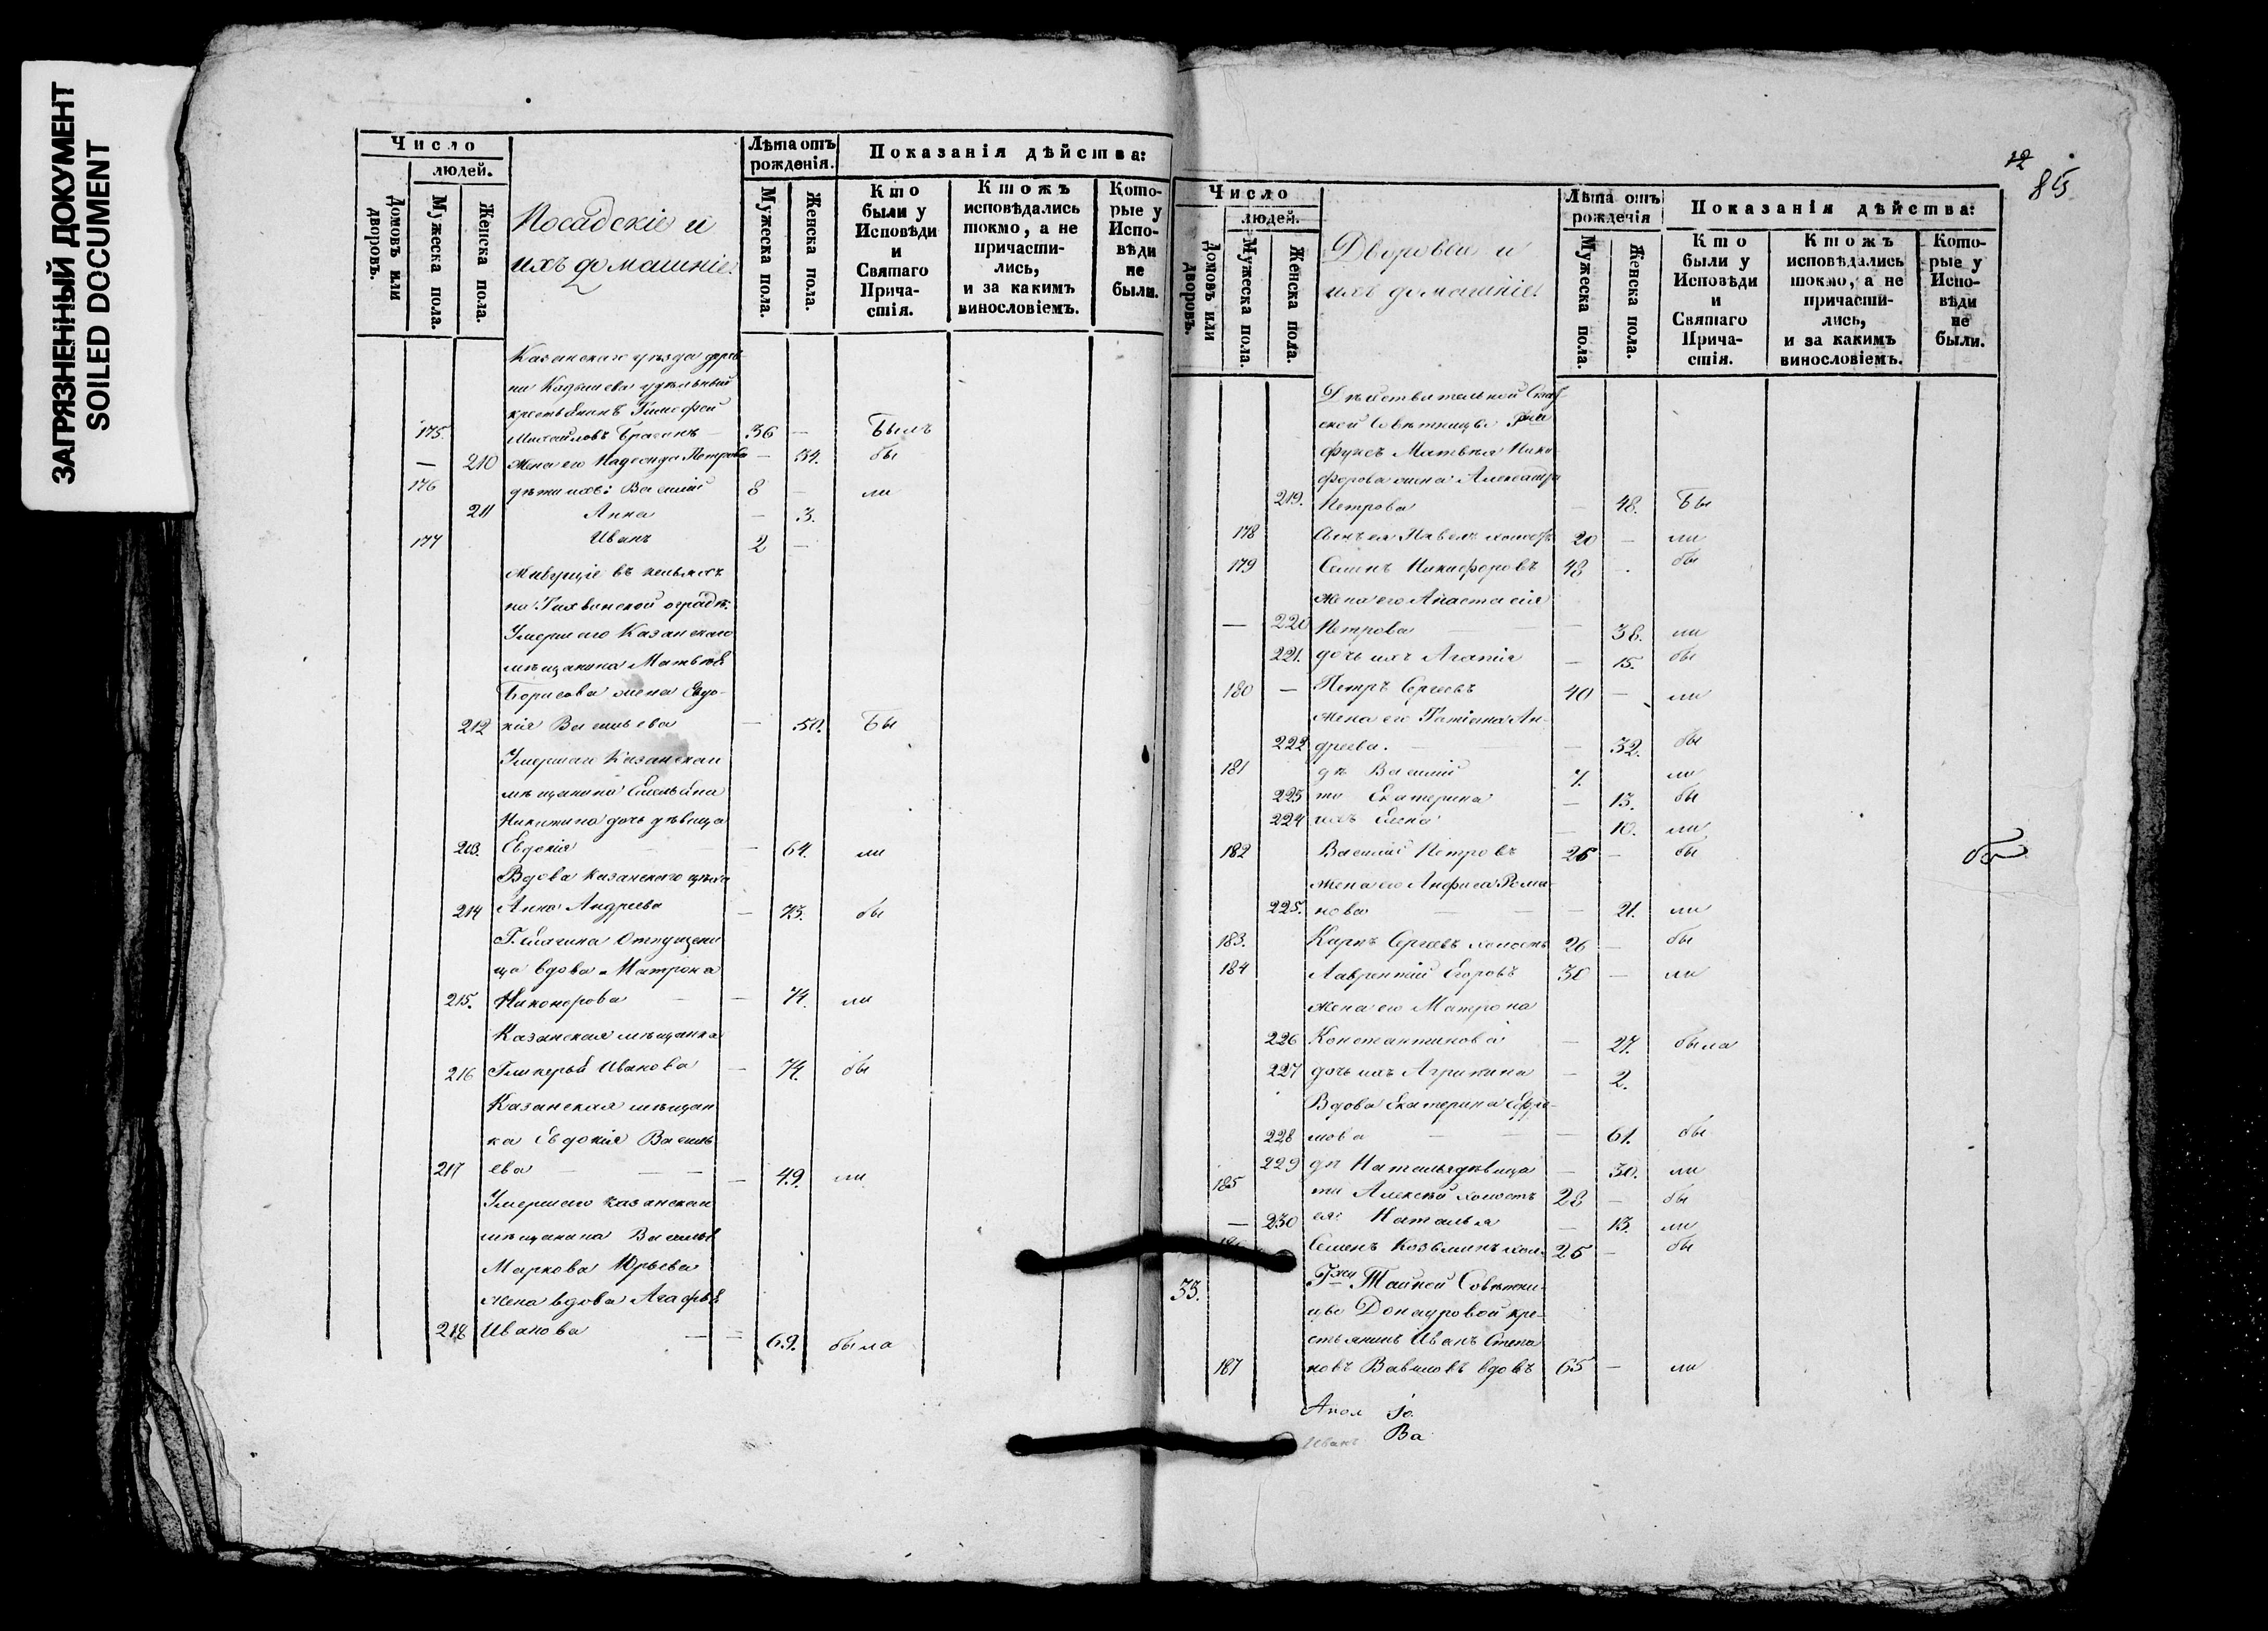 ЗАГРЯЗНЕННЫЙ ДОКУМЕНТ
SOILED DOCUMENT
Число
людей.
Домовъ или дворовъ.
Мужеска пола.
Женска пола.
Посадскіе и
ихъ домашніе.
Лѣта отъ рожденія.
Мужеска пола.
Женска пола.
Показанія дѣйства:
Кто были у Исповѣди и Святаго Причастія.
Ктожъ исповѣдались токмо, а не причастились, и за какимъ винословіемъ.
Которые у Исповѣди не были.
Казанскаго уѣзда дерев-
ни Кадышева удѣльный
крестьянинъ Тимофей
175. Михайловъ 36 — Былъ
— 210 жена его Надежда Петрова — 34. бы
176 дѣти ихъ: Василій 8 — ли
211 Анна — 3.
177 Иванъ 2 —
Живущіе въ кельяхъ
на Тихвинской оградѣ.
Умершаго Казанскаго
мѣщанина Матвѣя
Борисова жена Евдо-
212 кія Васильева — 50. Бы
Умершаго Казанскаго
мѣщанина Емельяна
Никитина дочь дѣвица
213. Евдокія — 64. ли
Вдова казанскаго цѣха
214 Анна Андреева — 73. бы
Отпущенни
ца вдова Матрона
215. Никонорова — 74. ли
Казанская мѣщанка
216 Гликерья Иванова — 74. бы
Казанская мѣщан
ка Евдокія Василь
217 ева — 49. ли
Умершаго казанскаго
мѣщанина Василья
Маркова Юрьева
жена вдова Агафья
218 Иванова — 69. была
12
85
Число
людей.
Домовъ или дворовъ.
Мужеска пола.
Женска пола.
Дворовые и
ихъ домашніе.
Лѣта отъ рожденія
Мужеска пола.
Женска пола.
Показанія дѣйства:
Кто были у Исповѣди и Святаго Причастія.
Ктожъ исповѣдались токмо, а не причастились, и за какимъ винословіемъ.
Которые у Исповѣди не были.
Дѣйствительной Стат
ской Совѣтницы Гжи
Фуксъ Матвѣя Ники
форова жена Александра
219. Петрова — 48. Бы
178 Сынъ ея Павелъ холостъ 20 — ли
179 Семенъ Никифоровъ 48 . бы
жена его Анастасія
— 220 Петрова — 38. ли
221. дочь ихъ Агапія — 15. бы
180 — Петръ Сергеевъ 40 — ли
жена его Татіана Ан-
222 дреева. — 32. бы
181 дѣ Василій 7. ли
223 ти Екатерина — 13. бы
224 ихъ Елена — 10. ли
182 Василій Петровъ 26 — бы
жена его Анфиса Рома-
225. нова — 21. ли
183. Карпъ Сергеевъ холостъ 26 — бы
184 Лаврентій Егоровъ 30 — ли
жена его Матрона
226 Константинова — 27. была
227 дочь ихъ Агрипина — 2.
Вдова Екатерина Ефре-
228 мова — 61. бы
229 дѣ Наталья дѣвица — 30. ли
185 ти Алексѣй холостъ 28 — бы
— 230 ея: Наталья — 13. ли
Семенъ Козьминъ хол. 26 — бы
35. Гжи Тайной Совѣтни-
цы Донауровой кре-
стьянинъ Иванъ Степа
187 новъ Вавиловъ вдовъ 65 — ли
Ва